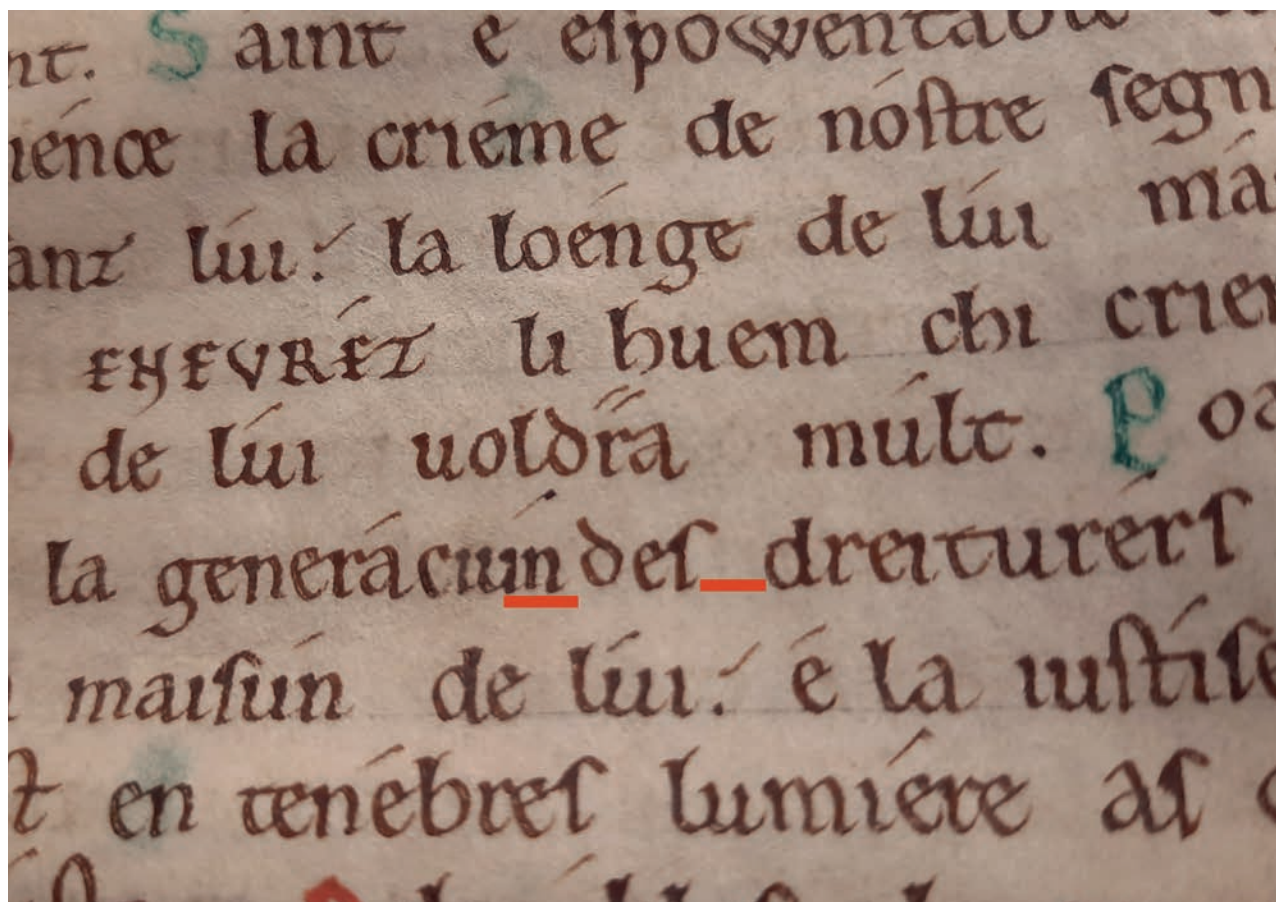 nt. Saint e espowentable
ience la criéme de nóstre segn
anz lúi: la loénge de lúi má
EHEVRÉZ li huem chi crien
de lúi uoldrá múlt. Poa
la generáciún des dreiturérs
maisún de lúi: é la iustise
st en tenébres lumiére as